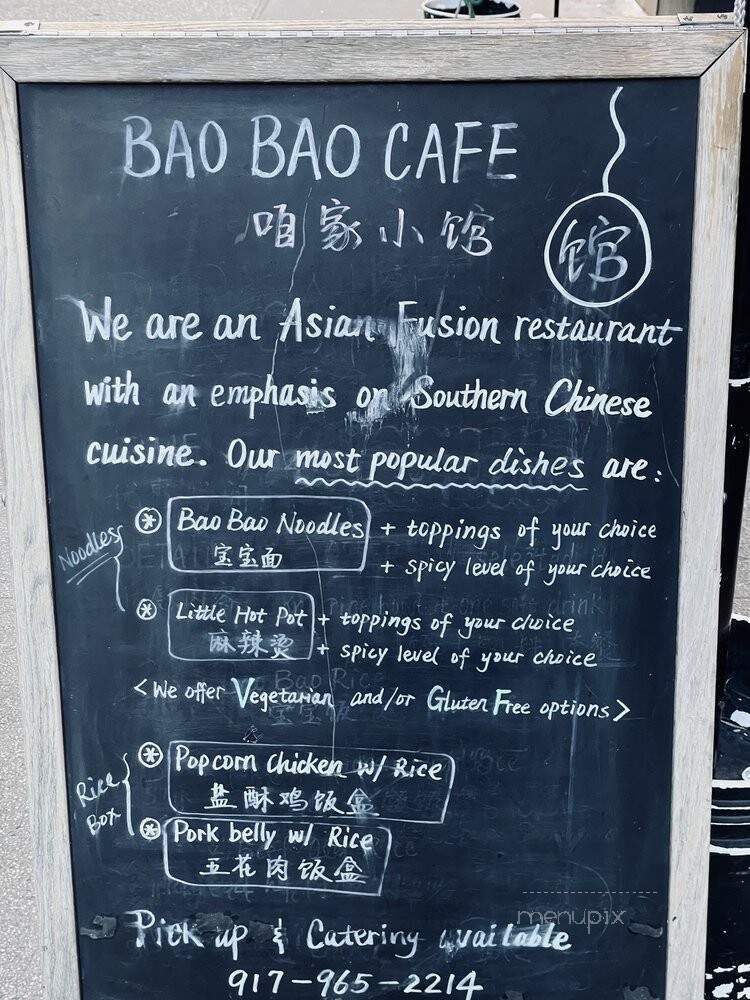 BAO BAO CAFE
咱家小馆
馆
We are an Asian Fusion restaurant
with an emphasis on Southern Chinese
cuisine. Our most popular dishes are:
Noodles
Bao Bao Noodles + toppings of your choice
宝宝面 + spicy level of your choice
Little Hot Pot + toppings of your choice
麻辣烫 + spicy level of your choice
<We offer Vegetarian and/or Gluten Free options>
Rice
Box
Popcorn chicken w/ Rice
盐酥鸡饭盒
Pork belly w/ Rice
五花肉饭盒
menupix
Pick up & Catering available
917-965-2214